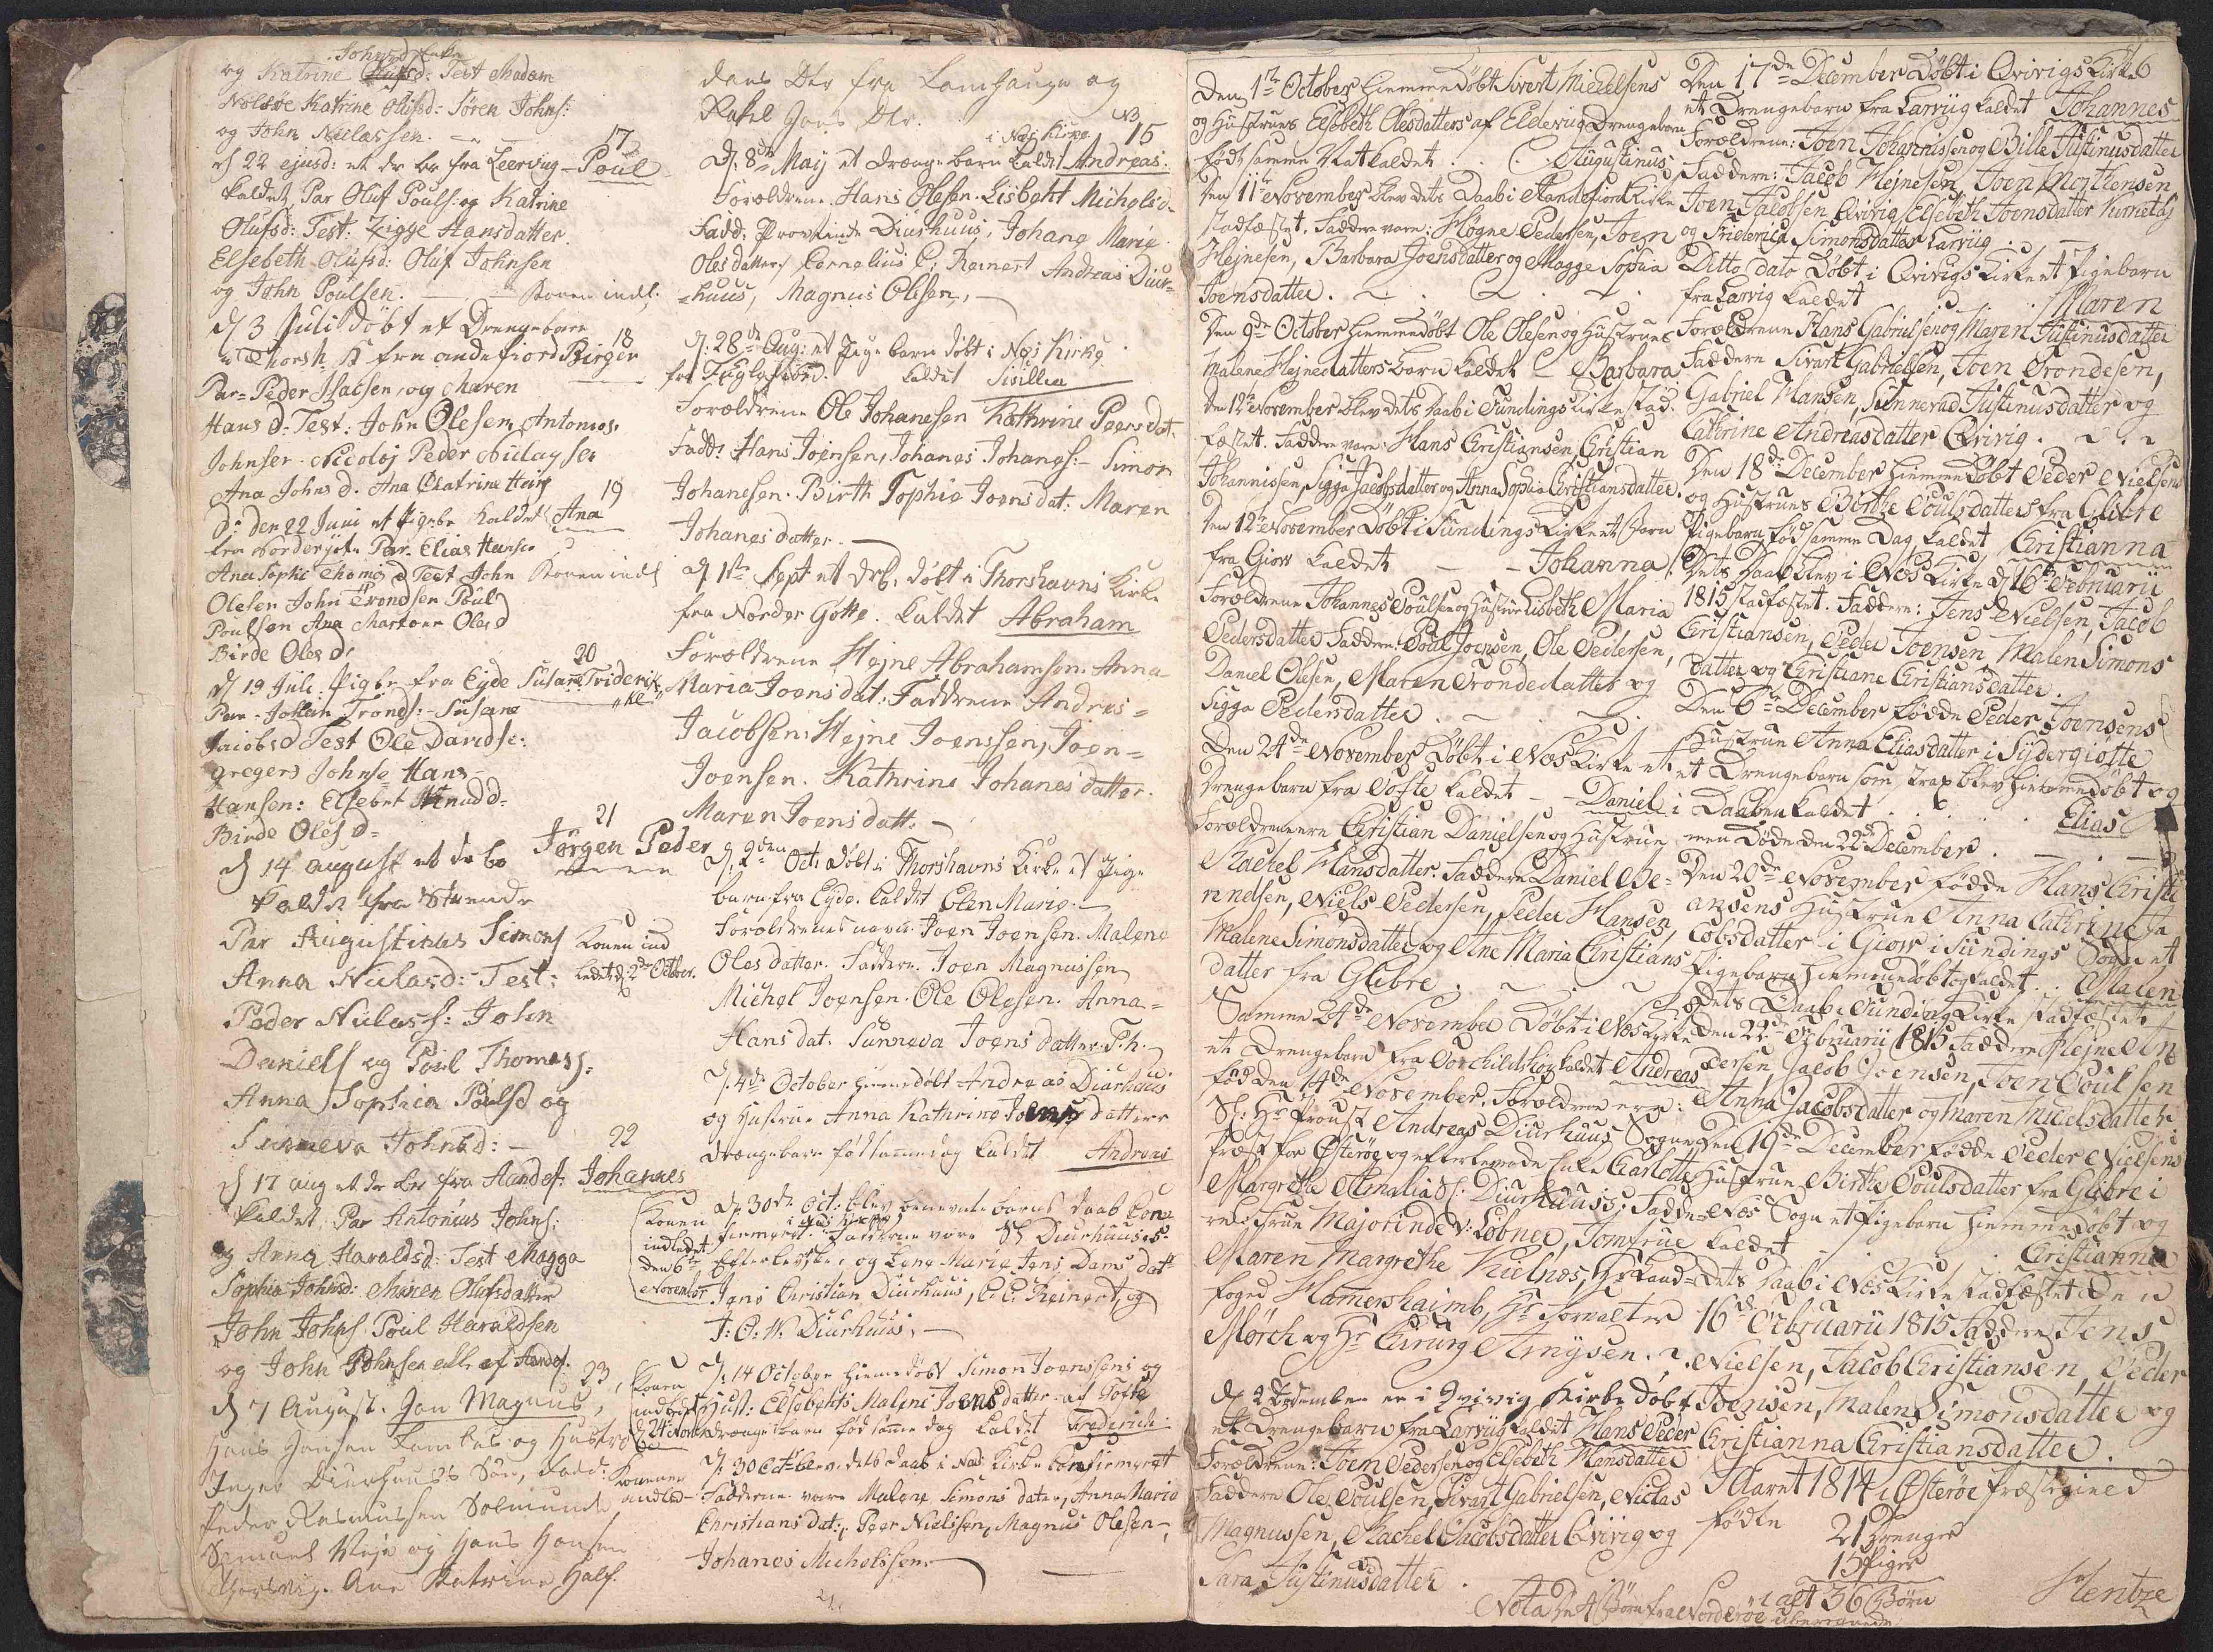 Johnsd Enke
og Katrine Olufsd: Test Madam
Nolsøe Katrine Olufsd: Sören Johns:
og John Niclassen.
17
d 22 ejusd: et dr be fra Leervüg - Poul
kaldet, Par Oluf Pouls: og Katrine
Olufsd: Test: Zigge Hansdatter.
Elsebeth Olufsd: Oluf Johnsen
og John Poulsen. Konen indl:
d 3 Juli döbt et Drengebarn
18
Thorsh. K fra andefiord Birger
Par- Peder Isacsen, og Maren
Hans d: Test: John Olesen, Antonios
Johnsen Nicolaj Peder Niclaysen
Ana Johns d. Ana Chatrine Heins
19
d: den 22 Juni et Pigebr kaldet Ana
fra Norderjöte Par. Elias Hanse
Ana Sophie Thomis d Test John Konen indl
Olesen John Trondsen Poul
Poulsen Ana Mar Oles d
Birde Oles d:
20
d 19 Juli Pigbr fra Eyde Susane Friderik
Par. Johan Tronds: Susana
Jacobsd Test Ole Davidse:
gregers Johnse Hans
Hansen: Elsebet Knud d-
Birde Oles d-
21
d 14 august et dr be Jörgen Peder
kaldet fra Strende
Par Augustinus Simons Konen ind
Anna Niclasd: Test: ledet d: 2de Octber.
Peder Niclass: John
Daniels og Poul Thomass:
Anna Sophia Poulsd og
Sunneva Johnsd: -
22
d 17 aug et dr be fra Andef: Johannes
kaldet, Par Antonius Johns:
og Anna Haraldsd: Test Magga
Sophia Johnsd: Maren Olufsdatter
John Johns Poul Haraldsen
og John Johnsen alle af Andef:
23
d 7 August. Jan Magnus,
Hans Hansen Lambas og Hustro
Inger Diurhuus's Sön, Fadd:
Peder Rasmussen Solmunde
Samuel Weje og Hans Hansen
Thorsvig. Ane Katrine Half
Konen
indledt
den 6te
November
Konen
indledet
d 24 Novbr
Konen
indled-
dans Dtr fra Lamhauge og
Rakel Joens Dtr.
15
i Nes Kirke
d: 8de May et drenge barn kaldt Andreas.
Foreldrene. Hans Olesen. Lisbeht Michelsd.
Fadd: Provstinde Diurhuus, Johane Marie
Oles datter, Cornelius C: Reinert Andreas Diur-
-huus, Magnus Olesen, -
d: 28de Aug: et Pige barn döbt i Nes Kirke
fra Fuglefiord. kaldet Sisillia
Foreldrene Ole Johanesen Kathrine Peersdat.
Fadd: Hans Joensen, Johanes Johanes: - Simon
Johanesen. Birth Sophie Joensdat: Maren
Johanesdatter. -
d 1ste Sept et drb. döbt i Thorshavns Kirke
fra Norder Götte. kaldet Abraham
Foreldrene Hejne Abrahamsen. Anna
Maria Joensdat: Faddrene Andreas-
Jacobsen, Hejne Joenssen, Joen-
Joensen. Kathrine Johanes datter.
Maren Joensdatt. -
d: 2den Oct: döbt i Thorshavns Kirke et Pige
barn fra Eyde. kaldet Elen Marie. -
Foreldrenes navn. Joen Joensen. Malene
Oles datter. Faddere. Joen Magnussen
Michel Joensen. Ole Olesen. Anna-
Hans dat. Sunneva Joens datter. T.h.
d: 4de October hiemedöbt Andreas Diurhuus
og Hustrue Anna Kathrine Joens datters
drengebarn föd samme dag kaldet Andreas
d: 30de Oct: blev benevnte barns daab Con-
firmeret i Nes Kirke. Fadderne vare Sl Diurhuuses
Efterleverske, og Lene Marie Jens Dams dat
Jens Christian Diurhuus, C. C. Reinert, og
J: C: W: Diurhuus, -
d: 14 October hiemedöbt Simon Joenssens og
Hust: Elsebehts Malene Joensdatter af Tofte
drengebarn föd samme dag kaldet Frederich
d: 30 Oct: blev dets daab i Nes Kirke Confirmeret
Fadderne vare Malene Simons dater, Anna Maria
Christians dat:, Peer Nielssen, Magnus Olesen -,
Johanes Michelssen. -
Den 1te October hiemmedöbt Sivert Michelsens
og Hustrues Elsebeth Olesdatters af Eldevig Drengebarn
födt samme Nat kaldet . . Augustinus
Den 11te November blev dets Daab i Andefiord Kirke
stadfæstet. Faddere vare: Högne Pedersen, Joen
Hejnesen, Barbara Joensdatter og Magge Sophia
Joensdatter.
Den 9de October hiemmedöbt Ole Olesen og Hustrues
Malene Hejnedatters barn kaldet Barbara
den 12te November blev dets Daab i Sundings Kirke stad-
fæstet. Faddere vare: Hans Christiansen, Christian
Johannissen, Sigga Jacobsdatter og Anna Sophia Christiansdatter.
Den 12te November Döbt i Sundings Kirke et barn
fra Giow kaldet - - Johanna
Foreldrene Johannes Poulsen og Hustrue Lisbeth Maria
Pedersdatter Faddere: Poul Joensen, Ole Pedersen,
Daniel Olesen, Maren Trondedatter og
Sigga Pedersdatter.
Den 24de November Döbt i Nes Kirke et
Drengebarn fra Tofte kaldet - - Daniel
Foreldrene ere Christian Danielsen og Hustrue
Rachel Hansdatter. Faddere Daniel Be-
rendsen, Niels Pedersen, Peder Hansen,
Malene Simonsdatter og Ane Maria Christians
datter fra Glibre.
Samme 24de November Döbt i Nes Kirke
et Drengebarn fra Torkildskov kaldet Andreas
föd den 14de November. Foreldrene ere:
Sl: Hr Proust Andreas Diurhuus Sogne-
Præst for Østeröe og efterlevende Enke Charlotte
Margrethe Amalia Sl: Diurhuuss; Fadde-
re: Frue Majorinde v: Löbner, Jomfrue
Maren Margrethe Hielnes, Hr Land-
foged Hamershaimb, Hr Forvalter
Mörch og Hr Chirurg Arnysen.
d 2 December er i Qvivig Kirke döbt
et Drengebarn fra Larvüg kaldet Hans Peder
Forældrene: Joen Pedersen og Elsebeth Hansdatter
Faddere Ole Poulsen, Sivart Gabrielsen, Niclas
Magnussen, Rachel Jacobsdatter Qvivig og
Sara Justinusdatter.
Den 17de December Döbt i Qvivigs Kirke
et Drengebarn fra Larvüg kaldet Johannes
Forældrene: Joen Johannissen og Bille Justinusdatter
Faddere: Jacob Hejnesen, Joen Mortensen,
Joen Jacobsen Qvivig, Elsebeth Joensdatter
og Friderica Simonsdatter Larvüg.
Ditto dato Döbt i Qvivigs Kirke et Pigebarn
fra Larvig kaldet Maren
Forældrene Hans Gabrielsen og Maren Justinusdatter
Faddere Sivart Gabrielsen, Joen Trondesen,
Gabriel Hansen, Sunnevad Justinusdatter og
Cathrine Andreasdatter Qvivig.
Den 18de December hiemmedöbt Peder Nielsens
og Hustrues Birthe Poulsdatters fra Glibre
Pigebarn föd samme Dag kaldet Christianna
Dets Daab blev i Nes Kirke d 16de Februarii
1815 stadfæstet. Faddere: Jens Nielsen, Jacob
Christiansen, Peder Joensen Malen Simons
datter og Christiane Christiansdatter.
Den 6te December födde Peder Joensens
Hustrue Anna Eliasdatter i Sydergiotte
et Drengebarn som strax blev hiemmedöbt og
i Daaben kaldet . . . Elias
men döde den 22de December.
Den 20de November födde Hans Christi
ansens Hustrue Anna Cathrine Ja
cobsdatter i Giow i Sundings Sogn et
Pigebarn hiemmedöbt og kaldet . . Malen
dets Daab i Sunding Kirke stadfæstet
Den 22de Februarii 1815 Faddere Hejne An
dersen, Jacob Joensen, Joen Poulsen
Anna Jacobsdatter og Maren Michelsdatter.
Den 19de December födde Peder Nielsens
Hustrue Birthe Poulsdatter fra Glibre i
Nes Sogn et Pigebarn hiemmedöbt og
kaldet Christianna
Dets Daab i Nes Kirke stadfæstet den
16de Februarii 1815 Faddere Jens
Nielsen, Jacob Christiansen, Peder
Joensen, Malen Simonsdatter og
Christianna Christiansdatter.
I Aaret 1814 i Österöe Præstegield
födte 21 Drenger
15 Piger
i alt 36 Börn
Hentze
Nota Det Börn fra Norderöe